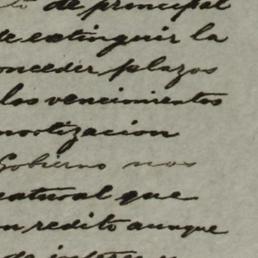 to de principal
de extinguir la
onceder plazos
los vencimientos
mortizacion
Gobierno nos
natural que
un redito aunque